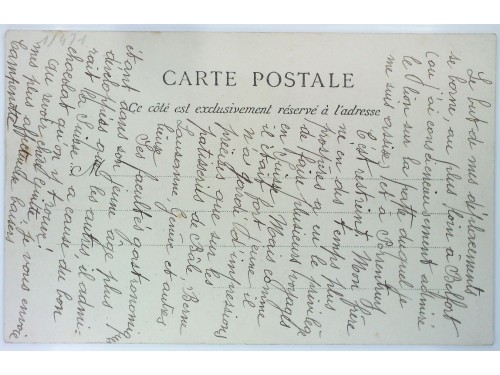 1/471
CARTE POSTALE
Ce côté est exclusivement réservé à l'adresse
Le but de mes déplacements
se borne au plus loin à Belfort
(où j'ai consciencieusement admiré
le lion sur la patte duquel je
me suis assise) et à Porrentruy
C'est restreint. Mon frère
en des temps plus
prospères a eu le privilège
de faire plusieurs voyages
en Suisse. Mais comme
il était fort jeune il
n'a gardé d'impressions
précises que sur les
patisseries de Bâle, Berne
Lausanne, Genève et autres
lieux
Ses facultés gastronomiques
étant dans son jeune âge plus
développées que les autres, il admi-
rait la Suisse à cause du bon
chocolat qu'on y trouve.
Au revoir, chère, je vous envoie
mes plus affectueux baisers